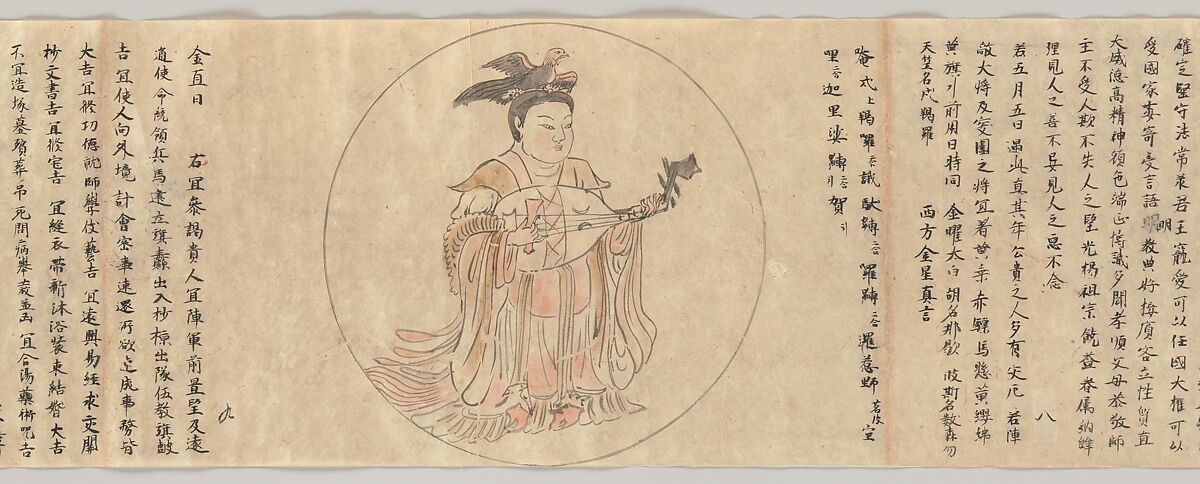 確定堅守法常求君王寵愛可以任國大權可以
受國家委寄憂言語明教典好接賓客立性質直
大威德高精神顏色端正博識多聞孝順父母恭敬師
主不受人欺不失人之望光揚祖宗饒益眷屬納
理見人之善不妄見人之惡不念
若五月五日遇此直其年公貴之人多有灾厄若陣
敵大將及安國之將宜著黃衣赤驥馬懸黃纓
黃旗引前用日時同 金曜太白胡名那歇 波斯名數森勿
天竺名戍羯羅 西方金星真言
唵 戍上羯羅二合誐馱縛二合 羅縛二合 濕
哩二合迦里娑縛二合賀引
八
金直日 右宜參謁貴人宜陣軍前
道使命統領兵馬遠立旗纛出入抄掠出隊伍教旗皷
吉 宜使人向外境計會密事速還所欲造成事務皆
大吉宜修功德就師學伎藝吉 宜遠興易經求交關
抄文書吉宜修宅吉 宜縫衣帶新沐浴裝束結婚大吉
不宜造塚墓殯葬弔死問病舉哀 宜合湯藥術咒吉
九